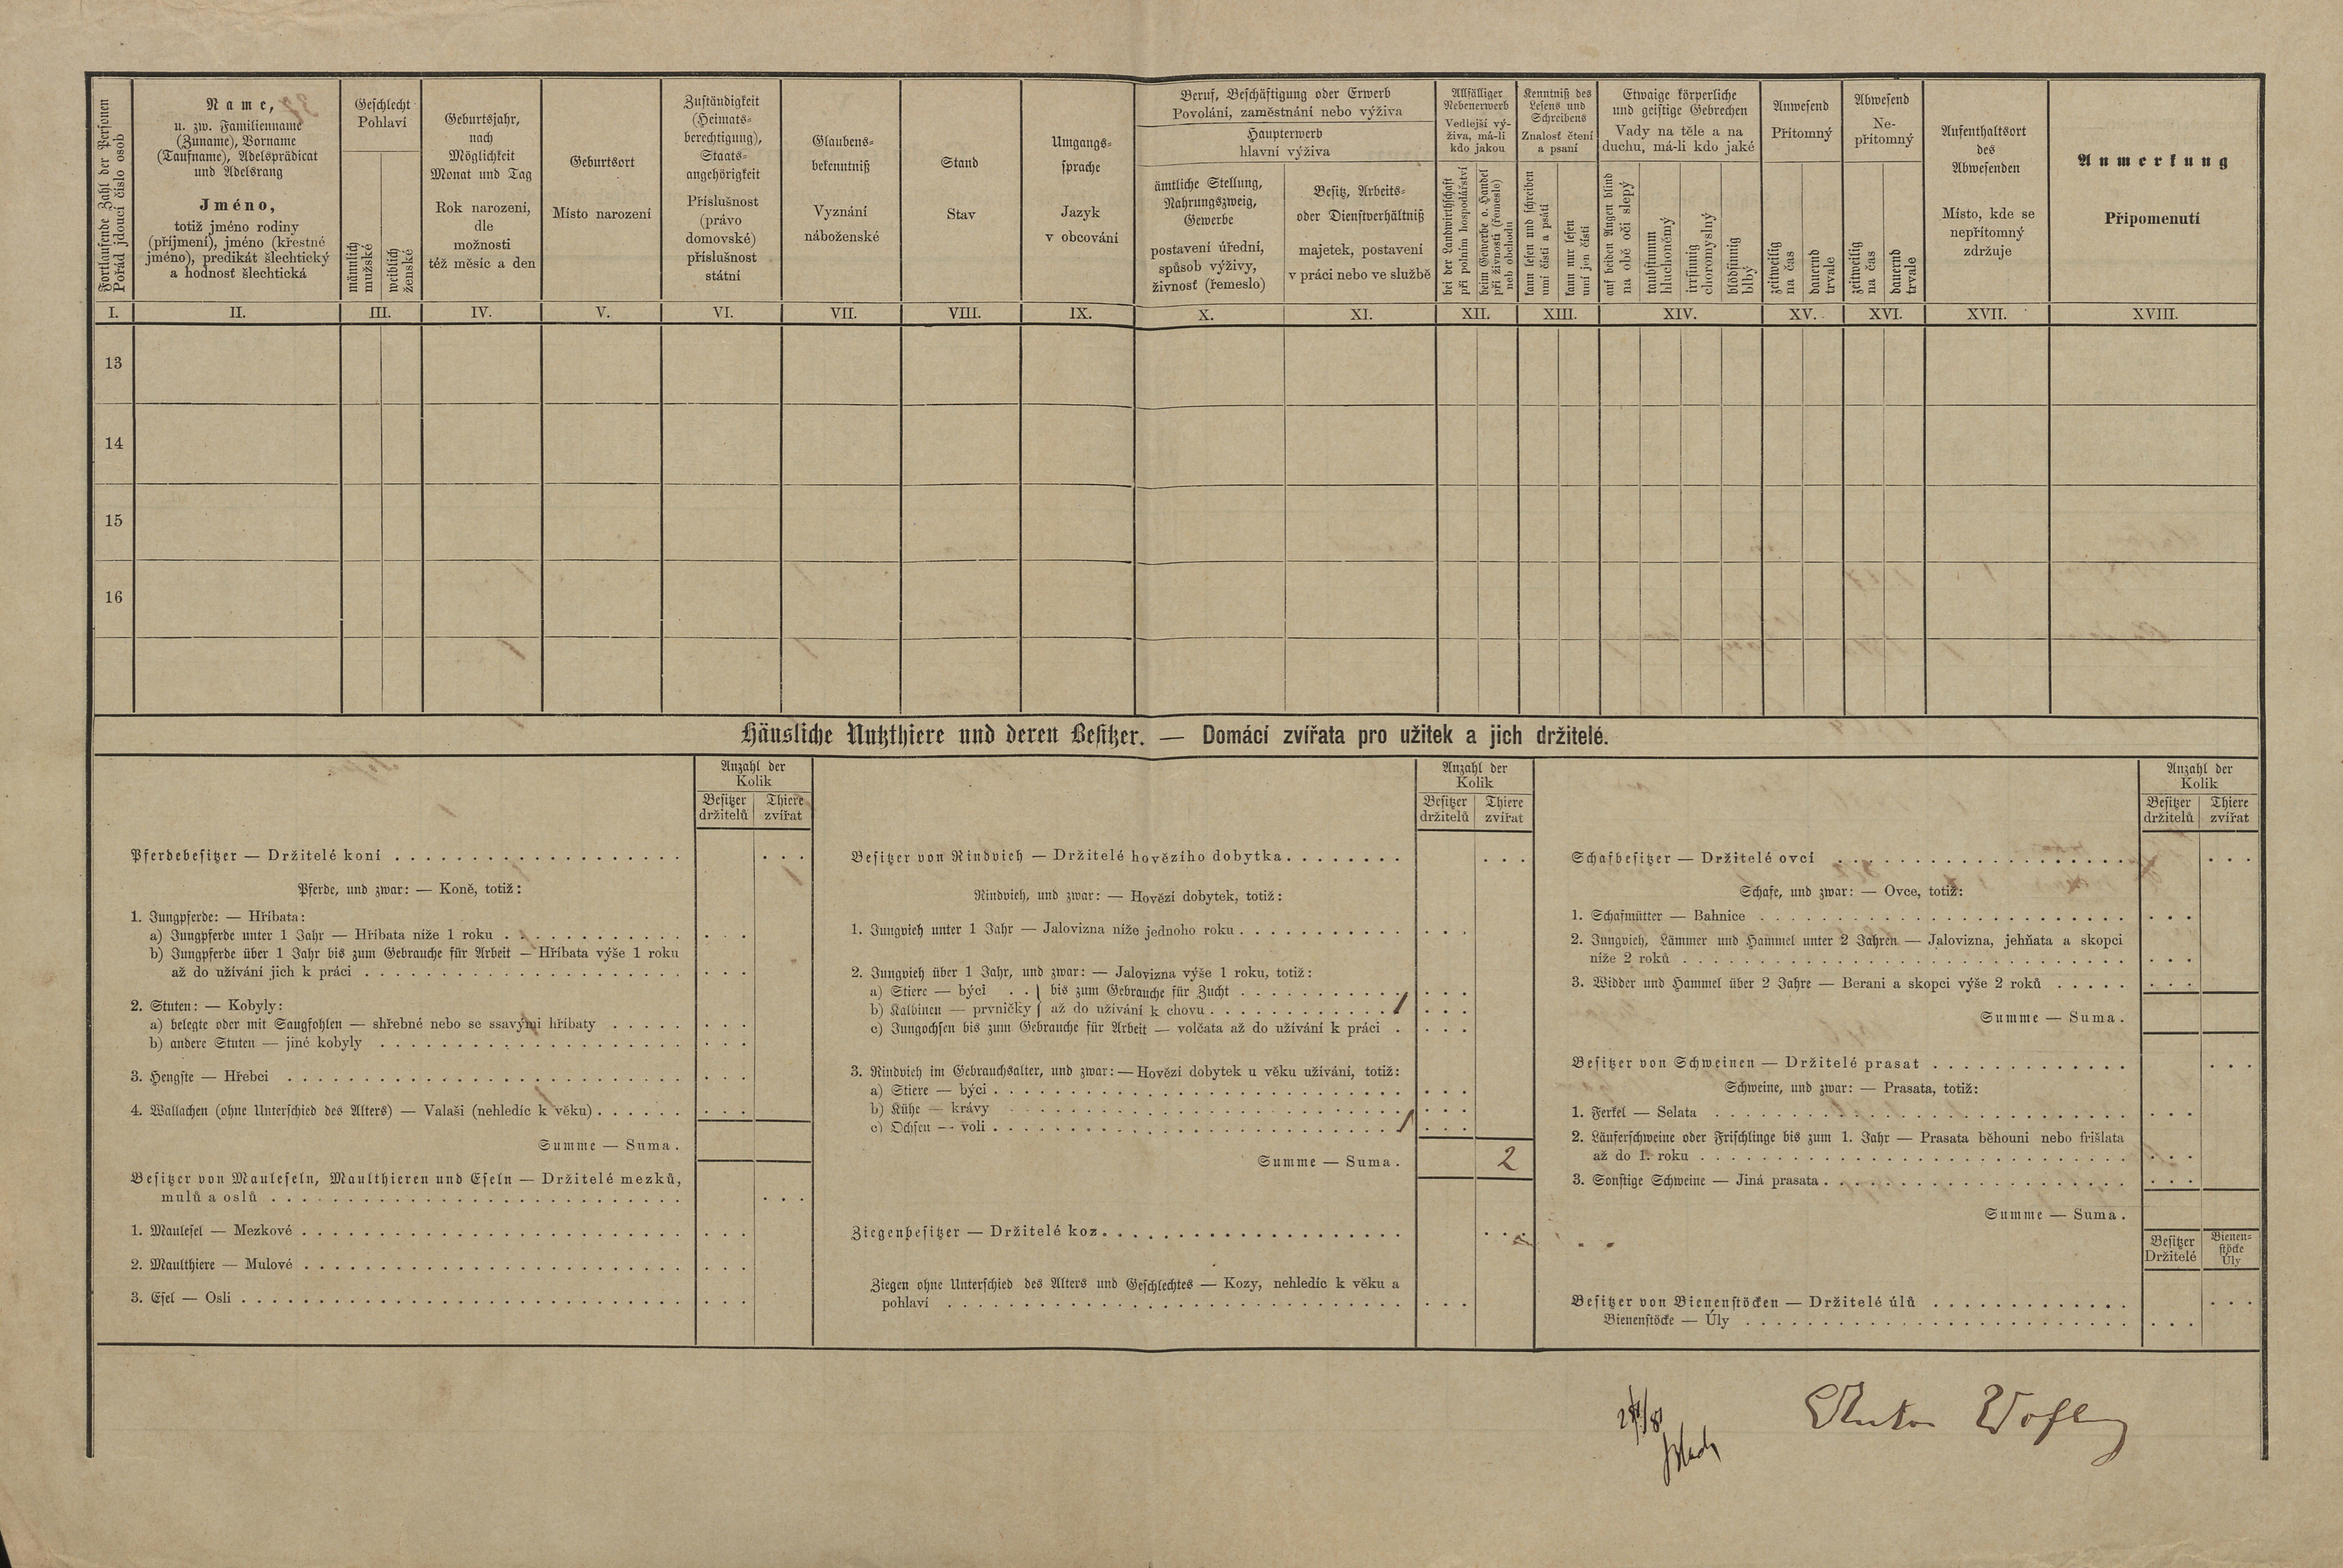 Fortlaufende Zahl der Personen
Pořád jdoucí číslo osob
Name,
u. zw. Familienname
(Zuname), Vorname
(Taufname), Adelsprädicat
und Adelsrang
Jméno,
totiž jméno rodiny
(příjmení), jméno (křestné
jméno), predikát šlechtický
a hodnosť šlechtická
Geschlecht
Pohlaví
männlich
mužské
weiblich
ženské
Geburtsjahr,
nach
Möglichkeit
Monat und Tag
Rok narození,
dle
možnosti
též měsíc a den
Geburtsort
Místo narození
Zuständigkeit
(Heimats-
berechtigung),
Staats-
angehörigkeit
Příslušnost
(právo
domovské)
příslušnost
státní
Glaubens-
bekenntniß
Vyznání
náboženské
Stand
Stav
Umgangs-
sprache
Jazyk
v obcování
Beruf, Beschäftigung oder Erwerb
Povolání, zaměstnání nebo výživa
Haupterwerb
hlavní výživa
ämtliche Stellung,
Nahrungszweig,
Gewerbe
postavení úřední,
spůsob výživy,
živnosť (řemeslo)
Besitz, Arbeits-
oder Dienstverhältniß
majetek, postavení
v práci nebo ve službě
Allfälliger
Nebenerwerb
Vedlejší vý-
živa, má-li
kdo jakou
bei der Landwirthschaft
při polním hospodářství
beim Gewerbe o. Handel
při živnosti (řemesle)
neb obchodu
Kenntniß des
Lesens und
Schreibens
Znalosť čtení
a psaní
kann lesen und schreiben
umí čísti a psáti
kann nur lesen
umí jen čísti
Etwaige körperliche
und geistige Gebrechen
Vady na těle a na
duchu, má-li kdo jaké
auf beiden Augen blind
na obě oči slepý
taubstumm
hluchoněmý
irrsinnig
choromyslný
blödsinnig
blbý
Anwesend
Přítomný
zeitweilig
na čas
dauernd
trvale
Abwesend
Ne-
přítomný
zeitweilig
na čas
dauernd
trvale
Aufenthaltsort
des
Abwesenden
Místo, kde se
nepřítomný
zdržuje
Anmerkung
Připomenutí
I. II. III. IV. V. VI. VII. VIII. IX. X. XI. XII. XIII. XIV. XV. XVI. XVII. XVIII.
13
14
15
16
Häusliche Nutzthiere und deren Besitzer. — Domácí zvířata pro užitek a jich držitelé.
Anzahl der
Kolik
Besitzer Thiere
držitelů zvířat
Pferdebesitzer — Držitelé koní
Pferde, und zwar: — Koně, totiž:
1. Jungpferde: — Hříbata:
a) Jungpferde unter 1 Jahr — Hříbata níže 1 roku
b) Jungpferde über 1 Jahr bis zum Gebrauche für Arbeit — Hříbata výše 1 roku
až do užívání jich k práci
2. Stuten: — Kobyly:
a) belegte oder mit Saugfohlen — shřebné nebo se ssavými hříbaty
b) andere Stuten — jiné kobyly
3. Hengste — Hřebci
4. Wallachen (ohne Unterschied des Alters) — Valaši (nehledíc k věku)
Summe — Suma.
Besitzer von Mauleseln, Maulthieren und Eseln — Držitelé mezků,
mulů a oslů
1. Maulesel — Mezkové
2. Maulthiere — Mulové
3. Esel — Osli
Anzahl der
Kolik
Besitzer Thiere
držitelů zvířat
Besitzer von Rindvieh — Držitelé hovězího dobytka
Rindvieh, und zwar: — Hovězí dobytek, totiž:
1. Jungvieh unter 1 Jahr — Jalovizna níže jednoho roku
2. Jungvieh über 1 Jahr, und zwar: — Jalovizna výše 1 roku, totiž:
a) Stiere — býci . . } bis zum Gebrauche für Zucht
b) Kalbinen — prvničky } až do užívání k chovu 1
c) Jungochsen bis zum Gebrauche für Arbeit — volčata až do užívání k práci
3. Rindvieh im Gebrauchsalter, und zwar: — Hovězí dobytek u věku užívání, totiž:
a) Stiere — býci
b) Kühe — krávy
c) Ochsen — voli 1
Summe — Suma. 2
Ziegenbesitzer — Držitelé koz
Ziegen ohne Unterschied des Alters und Geschlechtes — Kozy, nehledíc k věku a
pohlaví
Anzahl der
Kolik
Besitzer Thiere
držitelů zvířat
Schafbesitzer — Držitelé ovcí
Schafe, und zwar: — Ovce, totiž:
1. Schafmütter — Bahnice
2. Jungvieh, Lämmer und Hammel unter 2 Jahren — Jalovizna, jehňata a skopci
níže 2 roků
3. Widder und Hammel über 2 Jahre — Berani a skopci výše 2 roků
Summe — Suma.
Besitzer von Schweinen — Držitelé prasat
Schweine, und zwar: — Prasata, totiž:
1. Ferkel — Selata
2. Läuferschweine oder Frischlinge bis zum 1. Jahr — Prasata běhouni nebo frišlata
až do 1. roku
3. Sonstige Schweine — Jiná prasata
Summe — Suma.
Besitzer Bienen-
Držitelé stöcke
Úly
Besitzer von Bienenstöcken — Držitelé úlů
Bienenstöcke — Úly
Anton